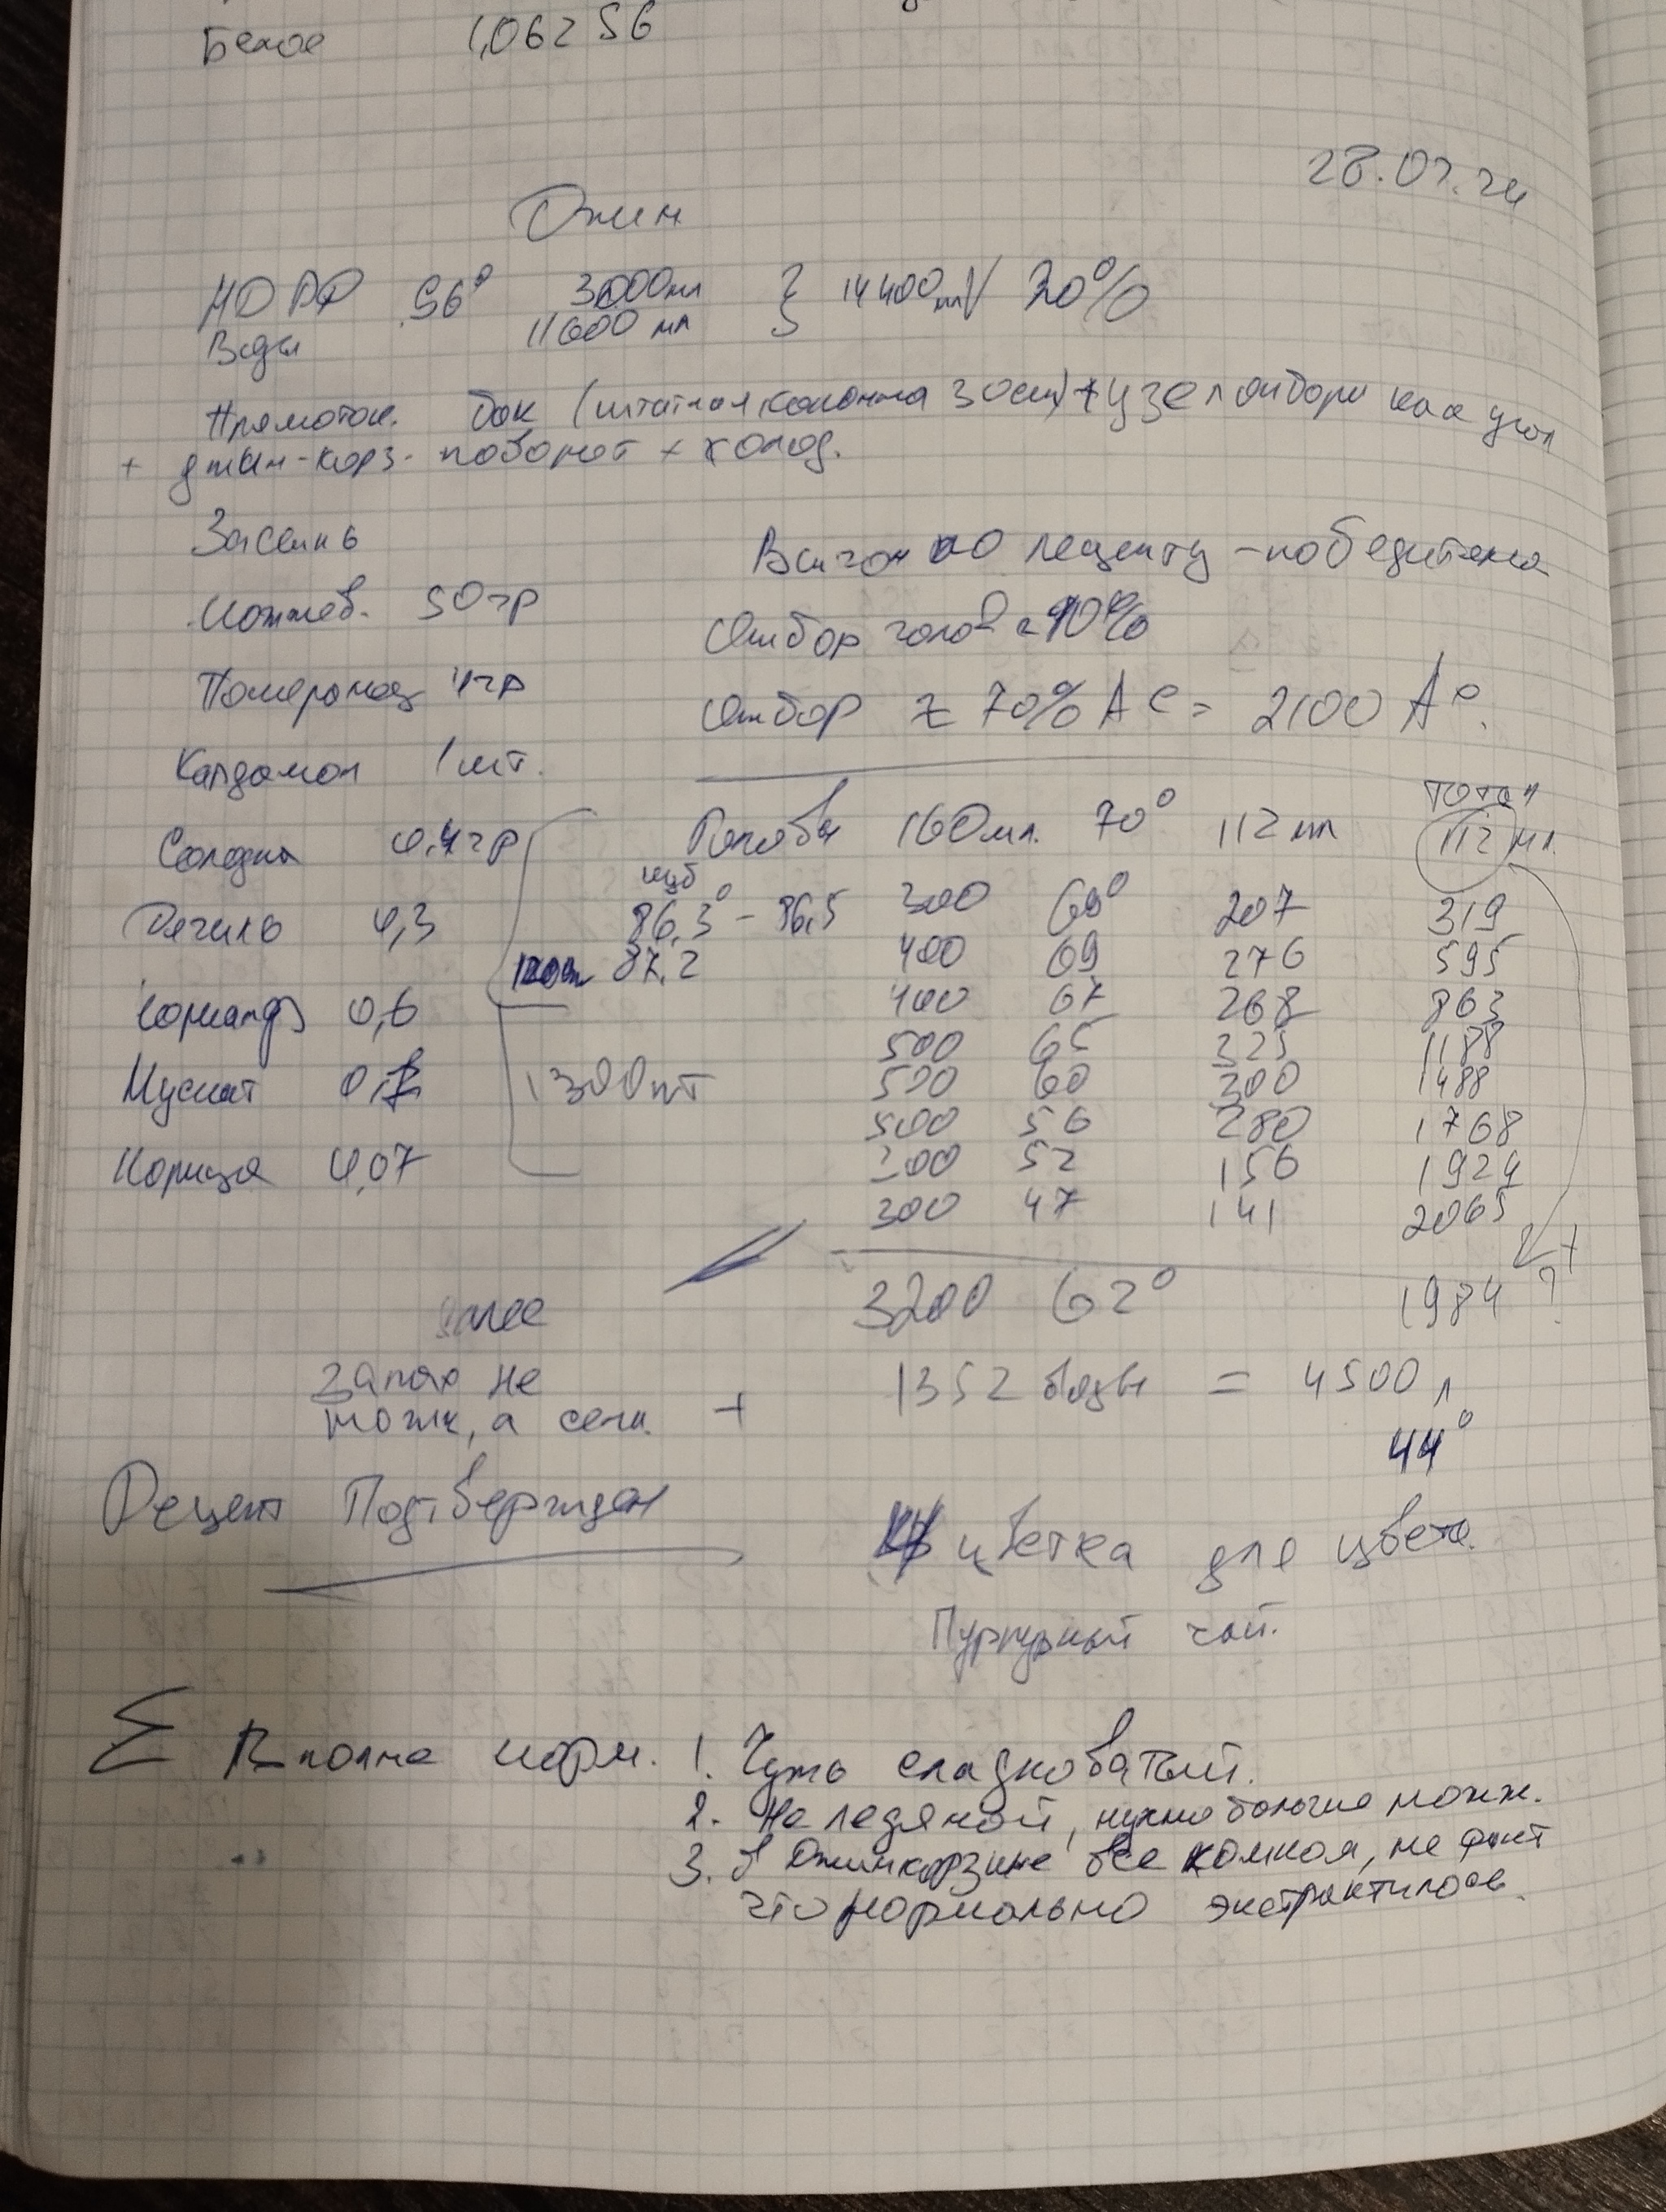 Белое 1,062 56
28.07.24
Джин
НДРФ 96° 3000мл } 14400мл / 20%
Вода 11600 мл
Прямоток. Бак (штатная колонна 30см) + узел отбора как угол
+ джин-корз. поворот + холод.
Засыпь
Выгон по рецепту-победителю
Можжев. 50гр
Отбор голов ≈ 10%
Померанец 4гр
Отбор ≈ 70% АС = 2100 АС.
Кардамон 1 шт.
Тотал
Солодка 0,4гр
Головы 160мл. 70° 112 мл 112 мл.
куб
Дягиль 0,3
86,3° - 86,5 300 69° 207 319
87,2 400 69 276 595
Кориандр 0,6
400 67 268 863
500 65 325 1188
Мускат
1300 шт
500 60 300 1488
500 56 280 1768
Корица 0,07
300 52 156 1924
300 47 141 2065
?
3200 62° 1984
Далее
запах не
можж, а сена.
+ 1352 воды = 4500 л
44°
Рецепт Подтвержден
цветка для цвета.
Пурпурный чай.
Σ Вполне норм. 1. Чуть сладковатый.
2. Не ледяной, нужно больше можж.
3. В Джинкорзине все комком, не факт
что нормально экстрактилось.